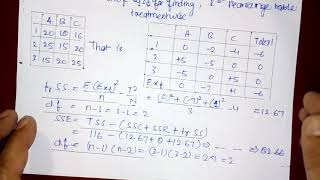 for finding, rearrange table
treatmentwise
A B C
1 20 10 16
2 25 15 20
3 15 20 25
That is
A B C Total
1 0 -2 -4 -6
2 +5 0 0
3 -5 0
Ext 0 -7 +1 -6
tr SS = Σ(Ext)² / n - T²/N = (0² + (-7)² + (1)²)/3 - 4 = 12.67
d.f = n-1 = 3-1 = 2
SSE = TSS - (SSC + SSR + tr SS)
= 116 - (12.67 + 0 + 12.67)
d.f = (n-1)(n-2) = (3-1)(3-2) = 2×1 = 2